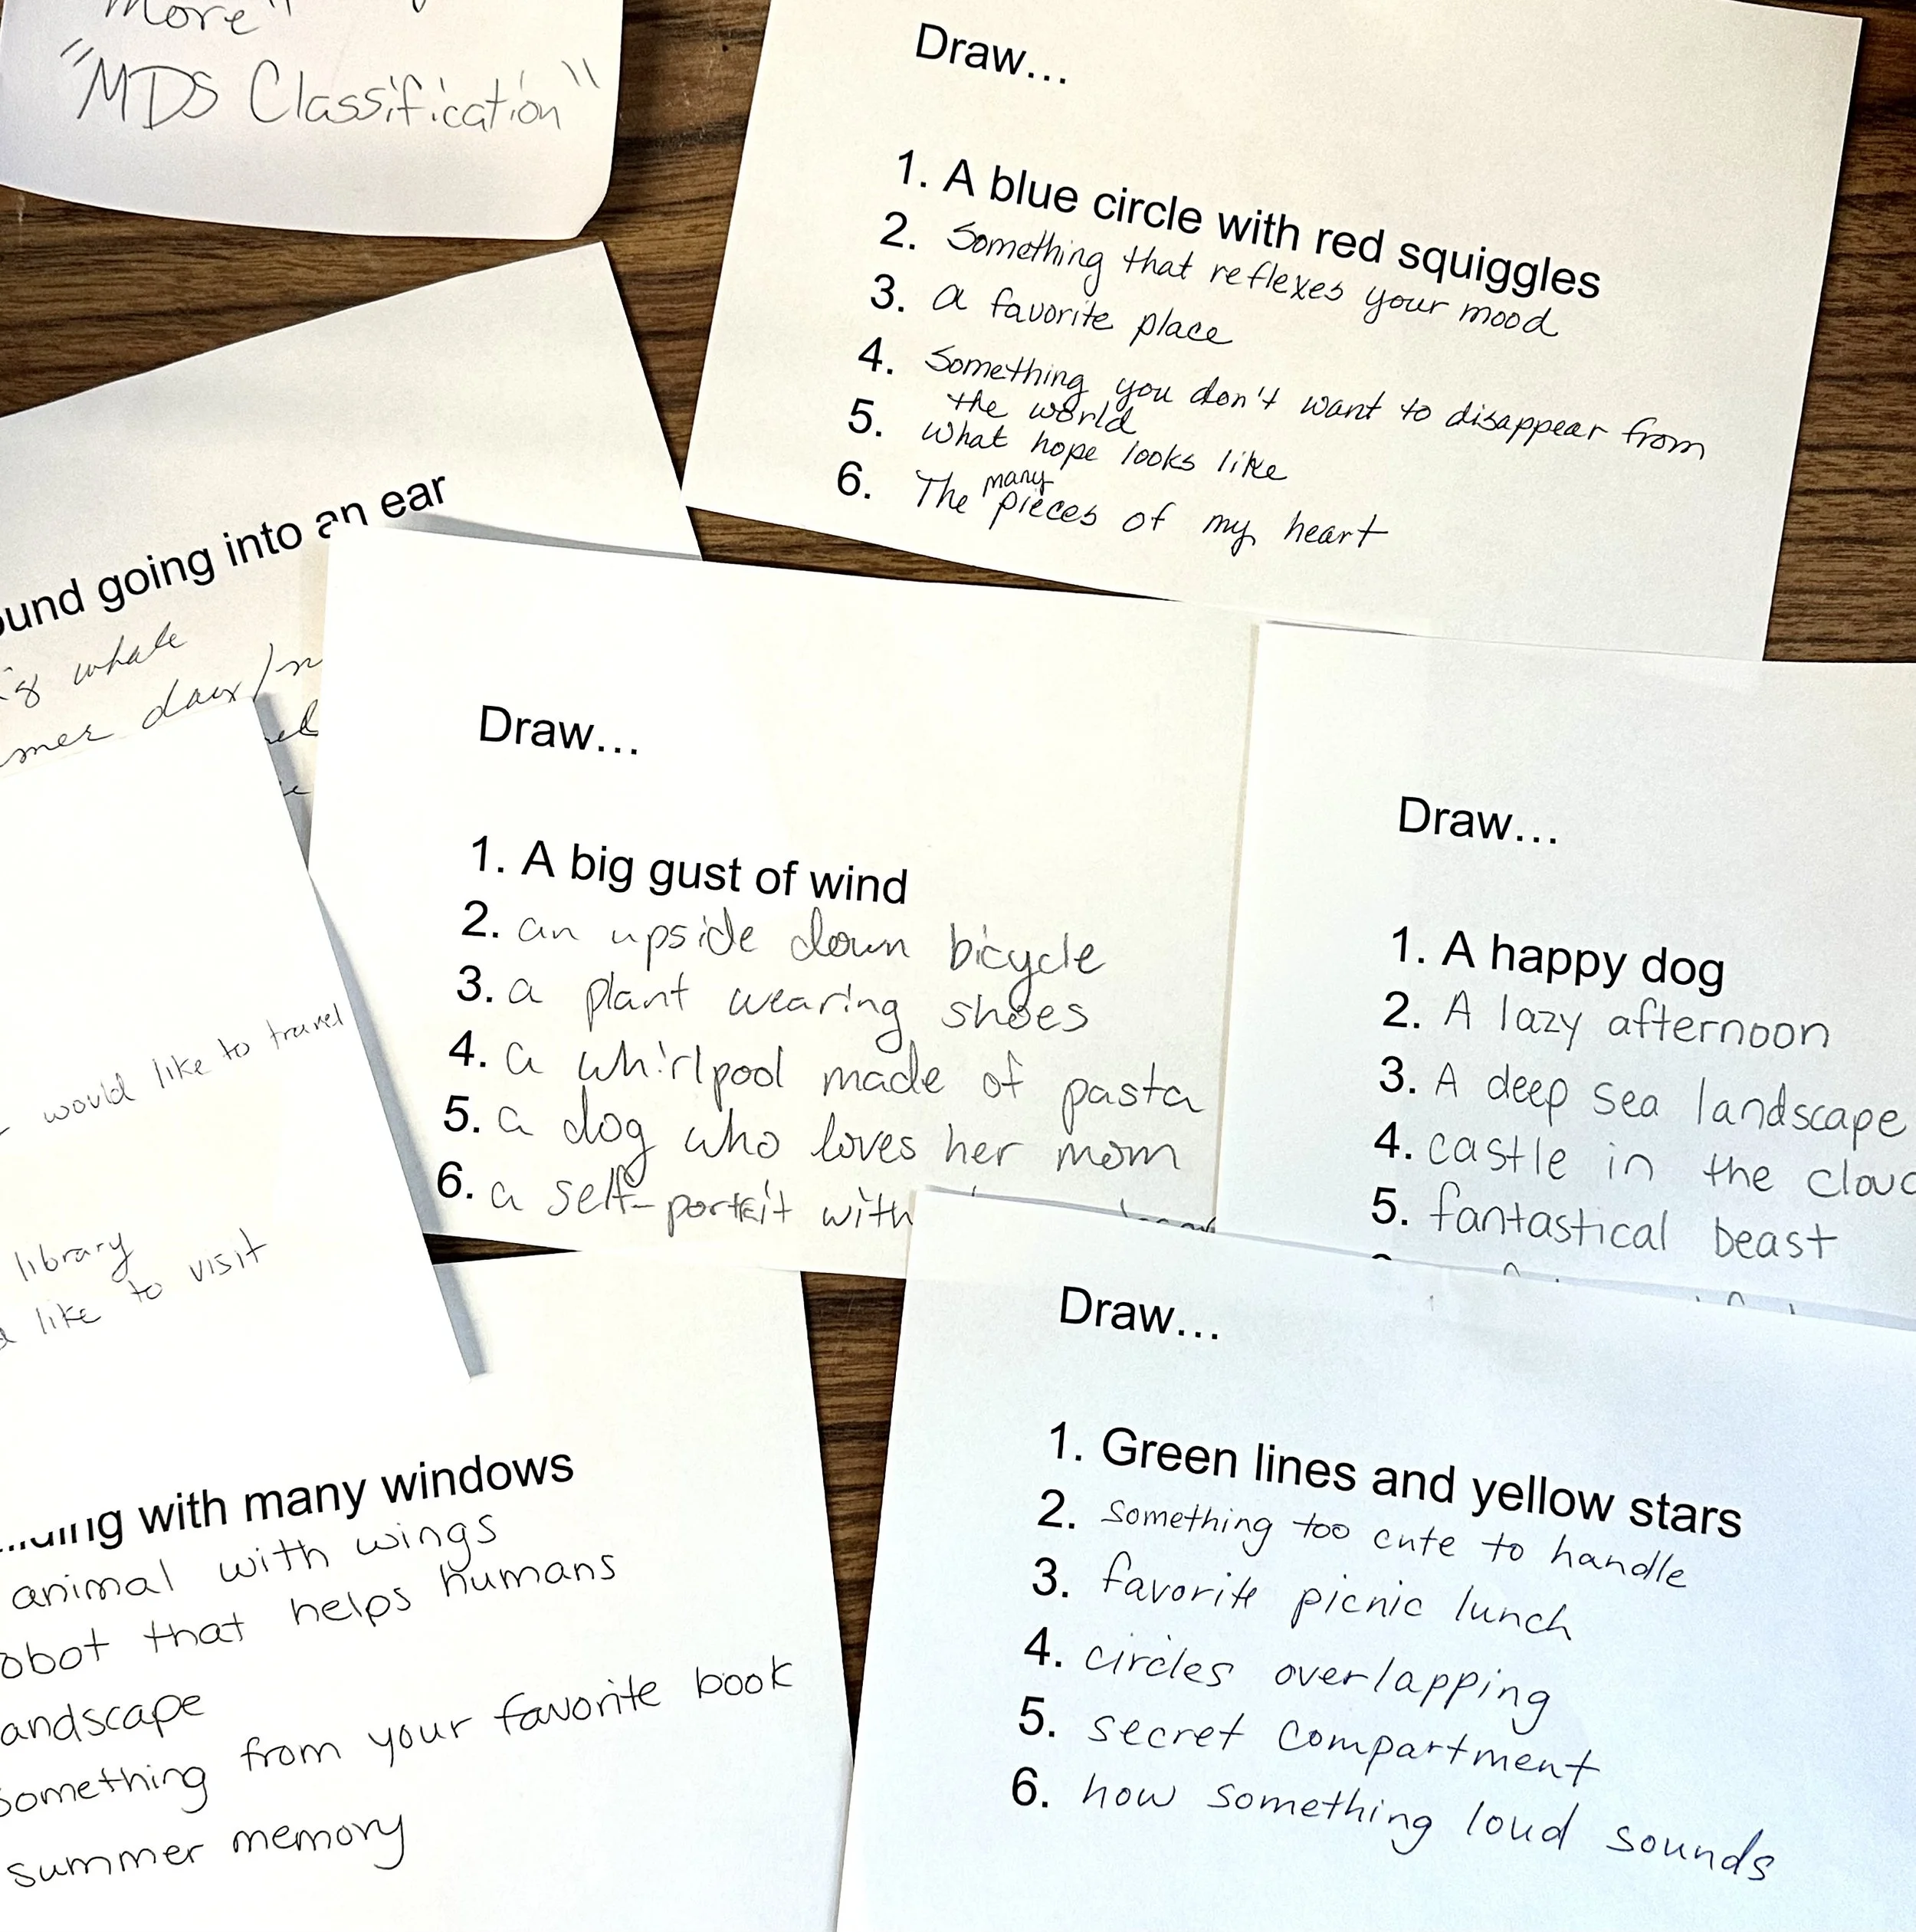 More"
"MDS Classification"
Draw...
1. A blue circle with red squiggles
2. Something that reflexes your mood
3. a favorite place
4. Something you don't want to disappear from
the world
5. what hope looks like
6. The many pieces of my heart
going into an ear
whale
Draw...
1. A big gust of wind
2. an upside down bicycle
3. a plant wearing shoes
4. a whirlpool made of pasta
5. a dog who loves her mom
6. a self-portrait with
Draw...
1. A happy dog
2. A lazy afternoon
3. A deep sea landscape
4. castle in the
5. fantastical beast
would like to travel
library
like to visit
with many windows
animal with wings
obot that helps humans
andscape
Something from your favorite book
summer memory
Draw...
1. Green lines and yellow stars
2. Something too cute to handle
3. favorite picnic lunch
4. circles overlapping
5. secret compartment
6. how something loud sounds